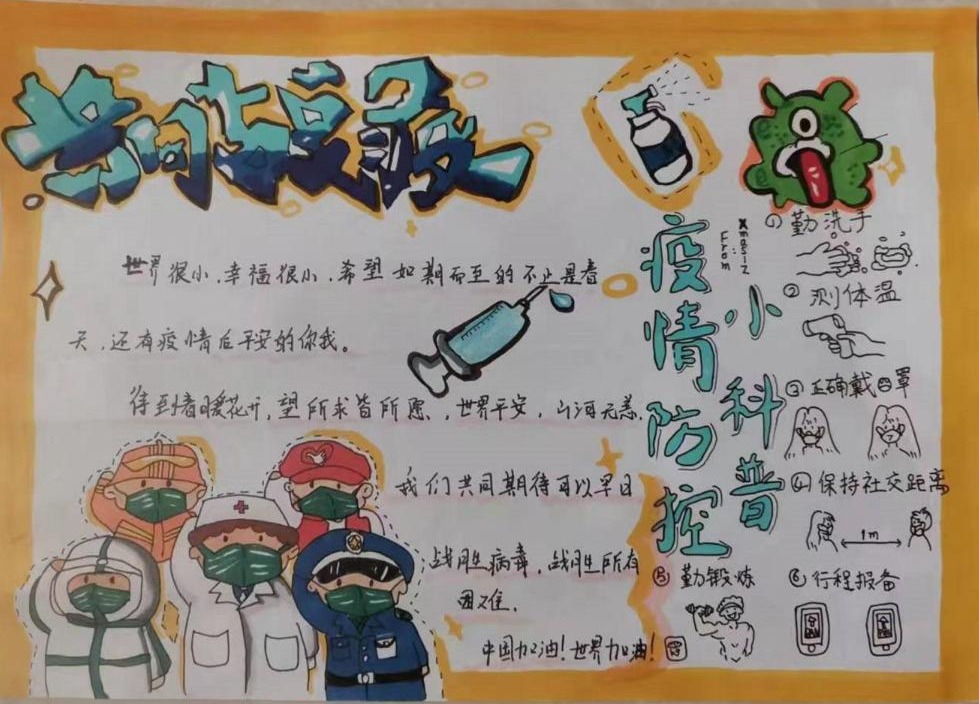 共同战疫
世界很小,幸福很小,希望如期而至的不止是春
天,还有疫情后平安的你我。
待到春暖花开,望所求皆所愿,世界平安,山河无恙,
我们共同期待可以早日
战胜病毒,战胜所有
困难.
中国加油!世界加油!
疫情防控
小科普
From:
①勤洗手
②测体温
③正确戴口罩
④保持社交距离
1m
⑤勤锻炼
⑥行程报备